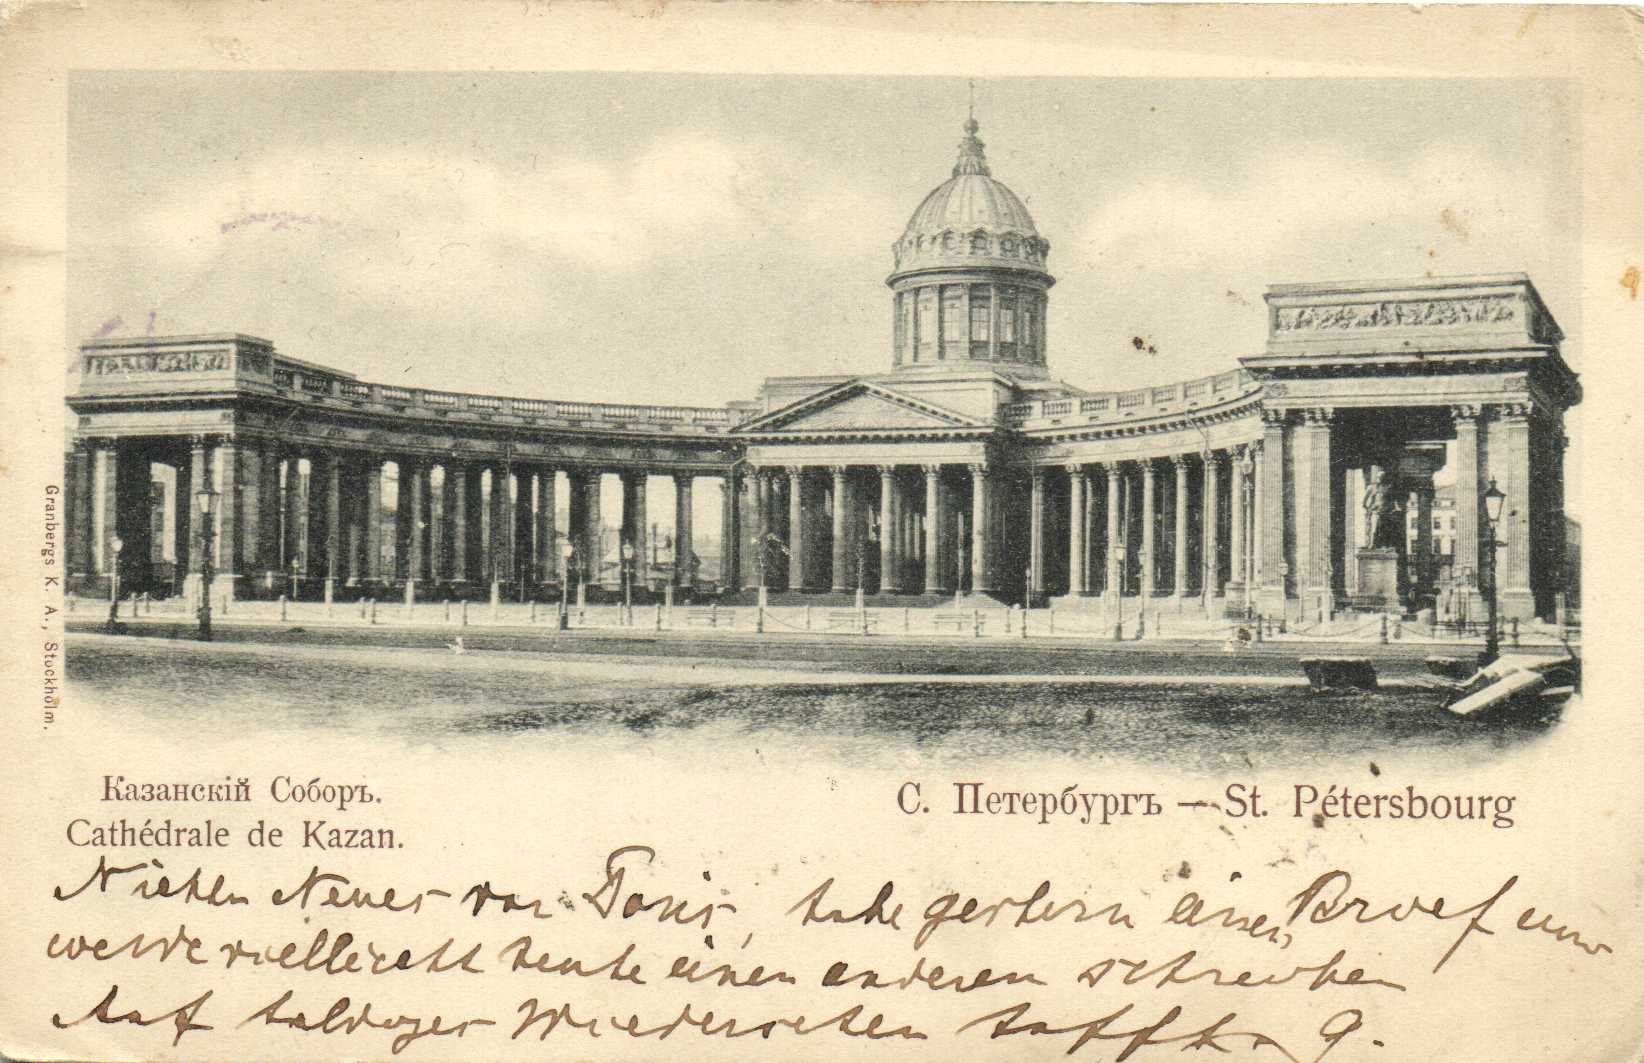 Granbergs K. A., Stockholm.
Казанскій Соборъ.
Cathédrale de Kazan.
С. Петербургъ — St. Pétersbourg
Neues von habe gestern einen Brief
werde vielleicht heute einen anderen schreiben
Auf baldiges Wiedersehen hofft